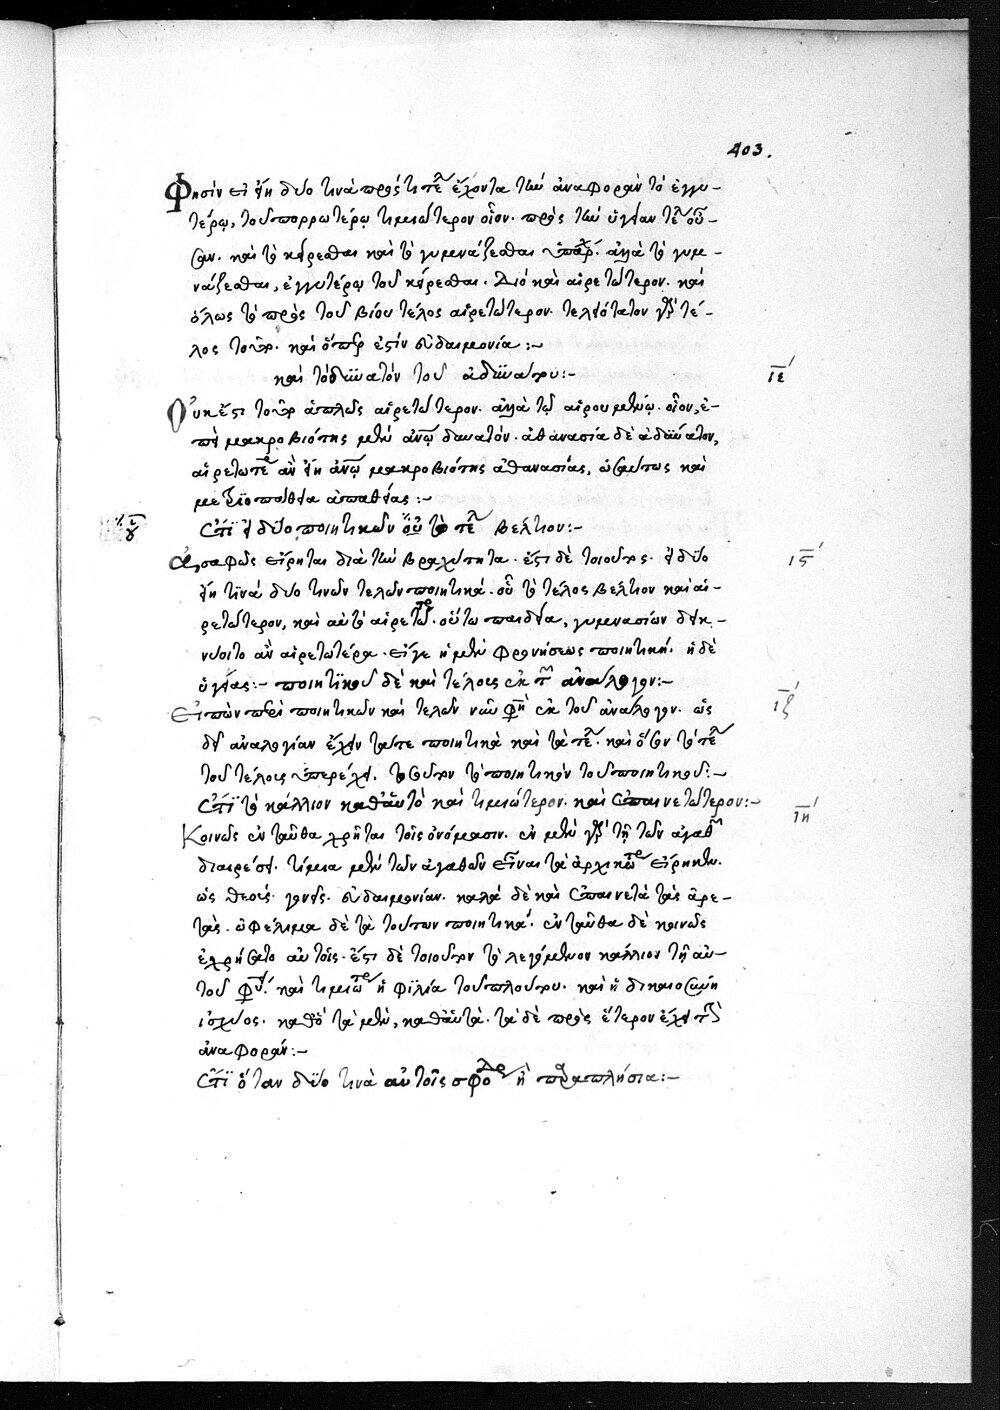 403.
Φησὶν εἰ εἴη δύο τινὰ πρός τι τέλος ἔχοντα τὴν ἀναφορὰν τὸ ἐγγυ-
τέρω, τοῦ πορρωτέρω τιμιώτερον οἷον. πρὸς τὴν ὑγίαν τέλος οὖ-
σαν. καὶ τὸ κείρεσθαι καὶ τὸ γυμνάζεσθαι ἀλλὰ τὸ γυμ-
νάζεσθαι, ἐγγυτέρω τοῦ κείρεσθαι. Διὸ καὶ αἱρετώτερον. καὶ
ὅλως τὸ πρὸς τοῦ βίου τέλος αἱρετώτερον. τελειότατον γὰρ τέ-
λος τοῦτο. καὶ ὅπερ ἐστὶν εὐδαιμονία :~
καὶ τὸ δυνατὸν τοῦ ἀδυνάτου:~
ιε′
Οὐκ ἔστι τοῦτο ἁπλῶς αἱρετώτερον. ἀλλὰ τῷ αἱρουμένῳ. οἷον, ἐ-
πεὶ μακροβιότης μὲν ἀνθρώπῳ δυνατόν. ἀθανασία δὲ ἀδύνατον,
αἱρετωτέρα ἂν εἴη ἀνθρώπῳ μακροβιότης ἀθανασίας, ὡσαύτως καὶ
μετριοπάθεια ἀπαθείας :~
ἔτι εἰ δύο ποιητικῶν οὗ τὸ τέλος βέλτιον:~
ἀσαφῶς εἴρηται διὰ τὴν βραχύτητα. ἔστι δὲ τοιοῦτος. εἰ δύο
ις′
εἴη τινά δύο τινῶν τελῶν ποιητικά. οὗ τὸ τέλος βέλτιον καὶ αἱ-
ρετώτερον, καὶ αὐτὸ αἱρετώτερον. οὕτω παιδεία, γυμνασίων δεικ-
νύοιτο ἂν αἱρετωτέρα. εἴγε ἡ μὲν φρονήσεως ποιητική. ἡ δὲ
ὑγείας:~ ποιητικοῦ δὲ καὶ τέλους ἐκ τοῦ ἀνάλογον:~
Εἰπὼν περὶ ποιητικῶν καὶ τελῶν νῦν φησὶ ἐκ τοῦ ἀνάλογον. ὡς
ιζ′
δεῖ ἀναλογίαν ἔχειν τά τε ποιητικὰ καὶ τὰ τέλη. καὶ ὅσον τὸ τέλος
τοῦ τέλους ὑπερέχει. τοσοῦτον τὸ ποιητικὸν τοῦ ποιητικοῦ:~
ἔτι τὸ κάλλιον καθ' αὑτὸ καὶ τιμιώτερον. καὶ ἐπαινετώτερον:~
ιη′
Κοινῶς ἐνταῦθα χρῆται τοῖς ὀνόμασιν. ἐν μὲν γὰρ τῇ τῶν ἀγαθῶν
διαιρέσει. τίμια μὲν τῶν ἀγαθῶν εἶναι τὰ ἀρχικώτερα εἴρηκεν.
ὡς θεούς. γονεῖς. εὐδαιμονίαν. καλὰ δὲ καὶ ἐπαινετὰ τὰς ἀρε-
τάς. ὠφέλιμα δὲ τὰ τούτων ποιητικά. ἐνταῦθα δὲ κοινῶς
ἐχρήσατο αὐτοῖς. ἔστι δὲ τοιοῦτον τὸ λεγόμενον κάλλιον τῇ αὐ-
τοῦ φύσει. καὶ τιμιώτερον ἡ φιλία τοῦ πλούτου. καὶ ἡ δικαιοσύνη
ἰσχύος. καθὸ τὰ μὲν, καθ' αὑτά. τὰ δὲ πρὸς ἕτερον ἔχει τὴν
ἀναφοράν:~
ἔτι ὅταν δύο τινὰ αὐτοῖς σφόδρα ἢ παραπλήσια:~